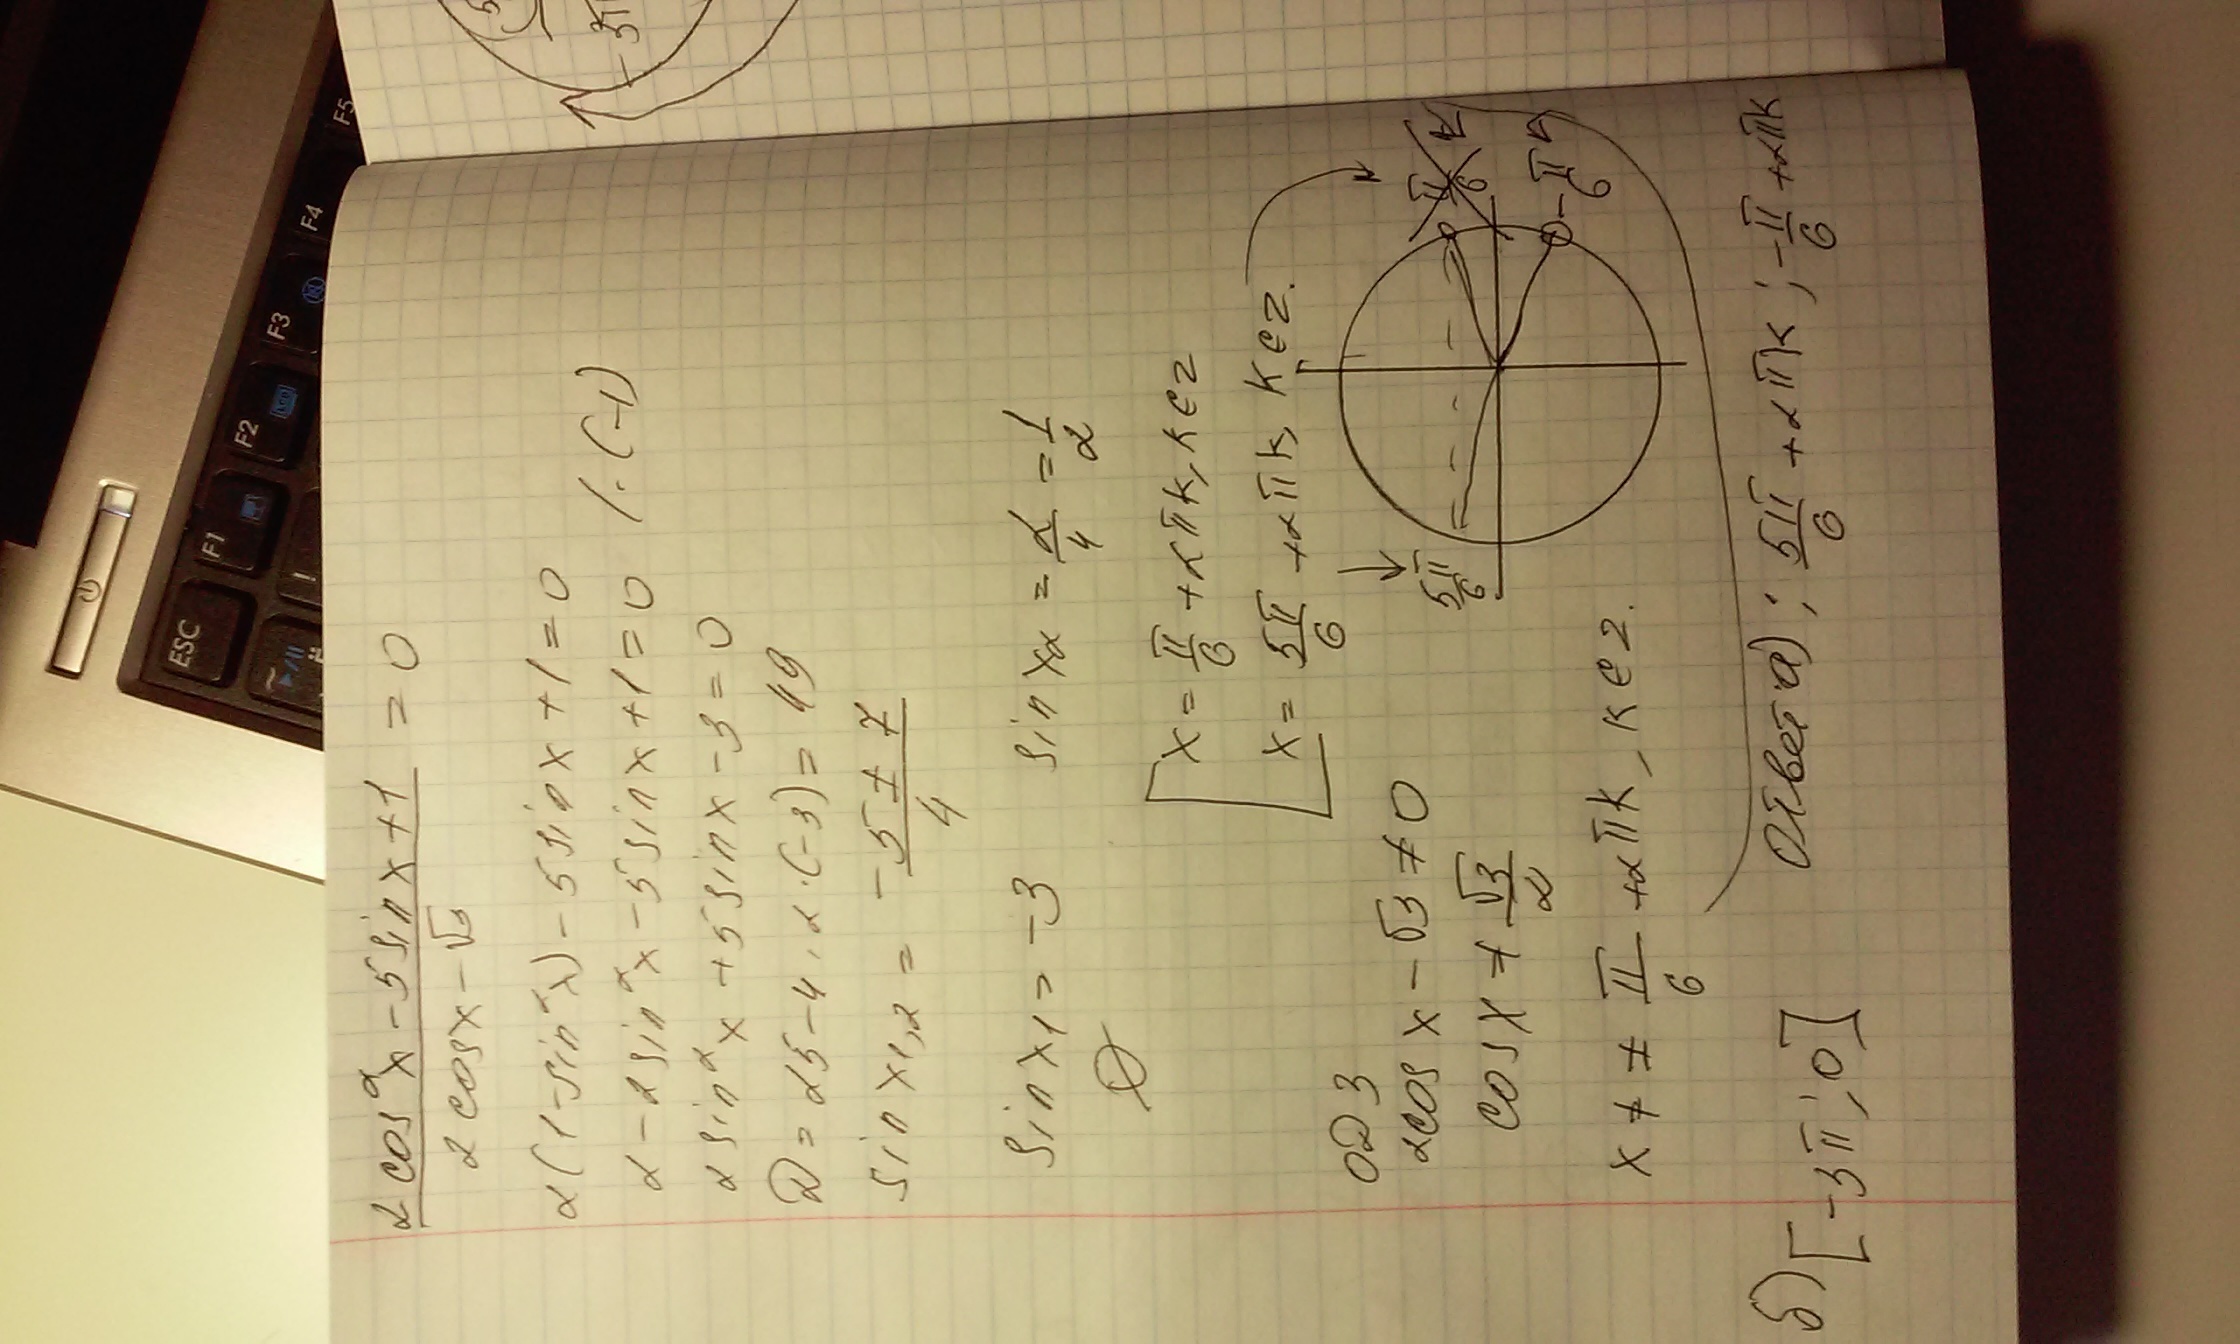 2cos²x-5sinx+1 / 2cosx-√3 = 0
2(1-sin²x)-5sinx+1=0
2-2sin²x-5sinx+1=0 /·(-1)
2sin²x+5sinx-3=0
D=25-4·2·(-3)=49
sin x₁,₂ = -5±7 / 4
sin x₁=-3 sin x₂ = 2/4 = 1/2
∅
[ x= π/6 +2πk, k∈Z
x= 5π/6 +2πk, k∈Z.
ОДЗ
2cosx-√3≠0
cosx≠ √3/2
x≠± π/6 +2πk, k∈Z.
5π/6
π/6
-π/6
Ответ а): 5π/6 +2πk; -π/6 +2πk
б) [-3π; 0]
-3π
ESC
F1
F2
F3
F4
F5